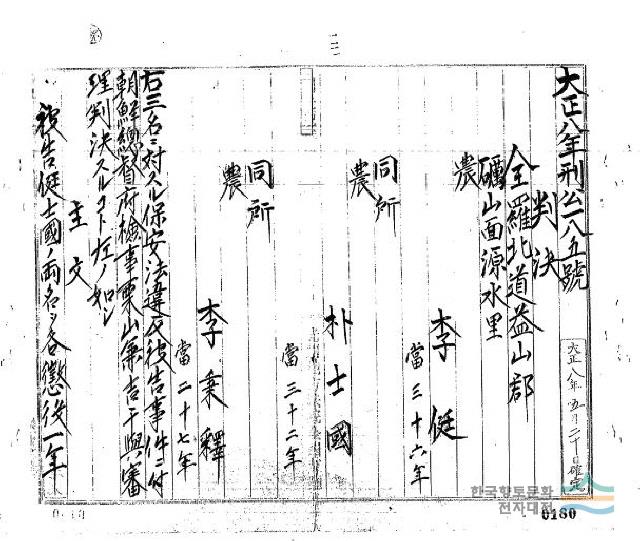 大正八年刑公一八五號
判決
全羅北道益山郡
礪山面源水里
農
李侹
當三十六年
同所
農
朴士國
當三十二年
同所
農
李秉釋
當二十七年
右三名ニ対スル保安法違反被告事件ニ付
朝鮮總督府検事栗山兼吉干與審
理判決スルコト左ノ如シ
主文
被告侹士國ノ両名ヲ各懲役一年
大正八年五月二十日確定
한국향토문화
전자대전
0180